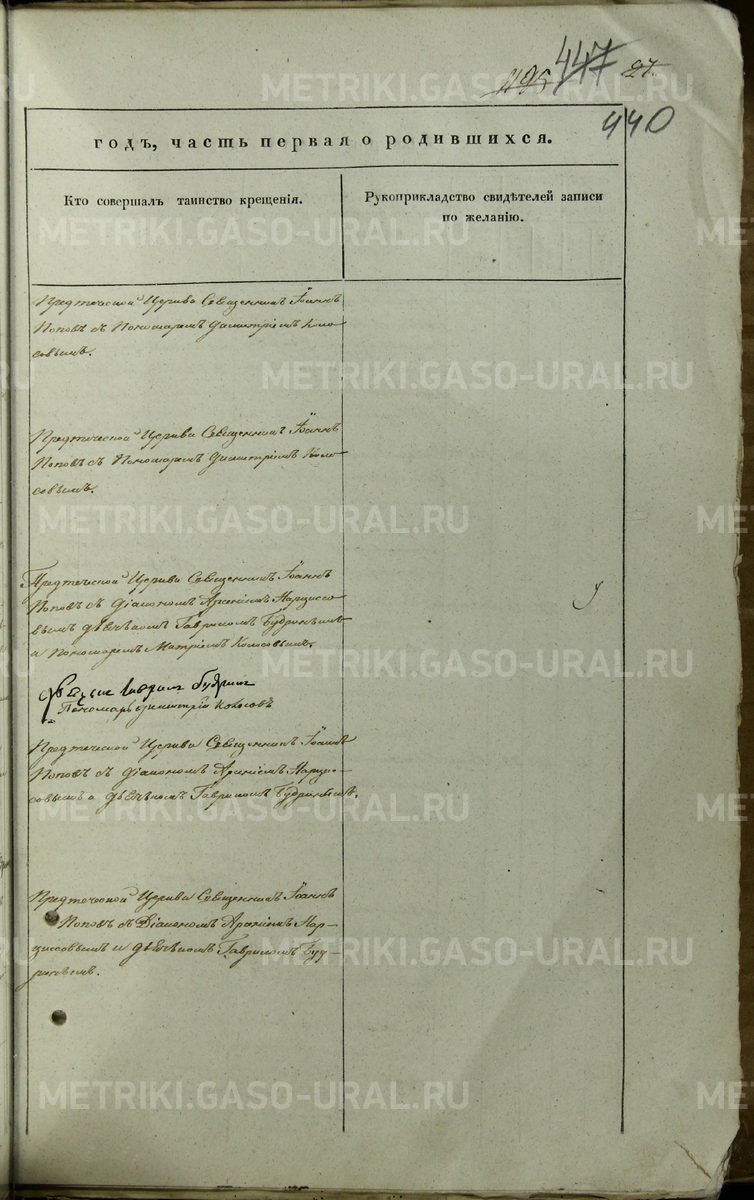 495 447 27.
440
годъ, часть первая о родившихся.
Кто совершалъ таинство крещенія.
Рукоприкладство свидѣтелей записи
по желанію.
Предтеческой Церкви Священникъ Іоаннъ
Поповъ съ Пономаремъ Димитріемъ Коло-
совымъ.
Предтеческой Церкви Священникъ Іоаннъ
Поповъ съ Пономаремъ Димитріемъ Коло-
совымъ.
Предтеческой Церкви Священникъ Іоаннъ
Поповъ съ Діакономъ Арсеніемъ Нарциссо-
вымъ дьячкомъ Гавриломъ Будринымъ
и Пономаремъ Колосовымъ.
Гаврилъ Будринъ
Пономарь Димитрій Колосовъ
Предтеческой Церкви Священникъ Іоаннъ
Поповъ съ Діакономъ Арсеніемъ Нарцис-
совымъ и дьячкомъ Гавриломъ Будринымъ.
Предтеческой Церкви Священникъ Іоаннъ
Поповъ съ Діакономъ Арсеніемъ Нар-
циссовымъ и дьячкомъ Гавриломъ Буд-
ринымъ.
METRIKI.GASO-URAL.RU